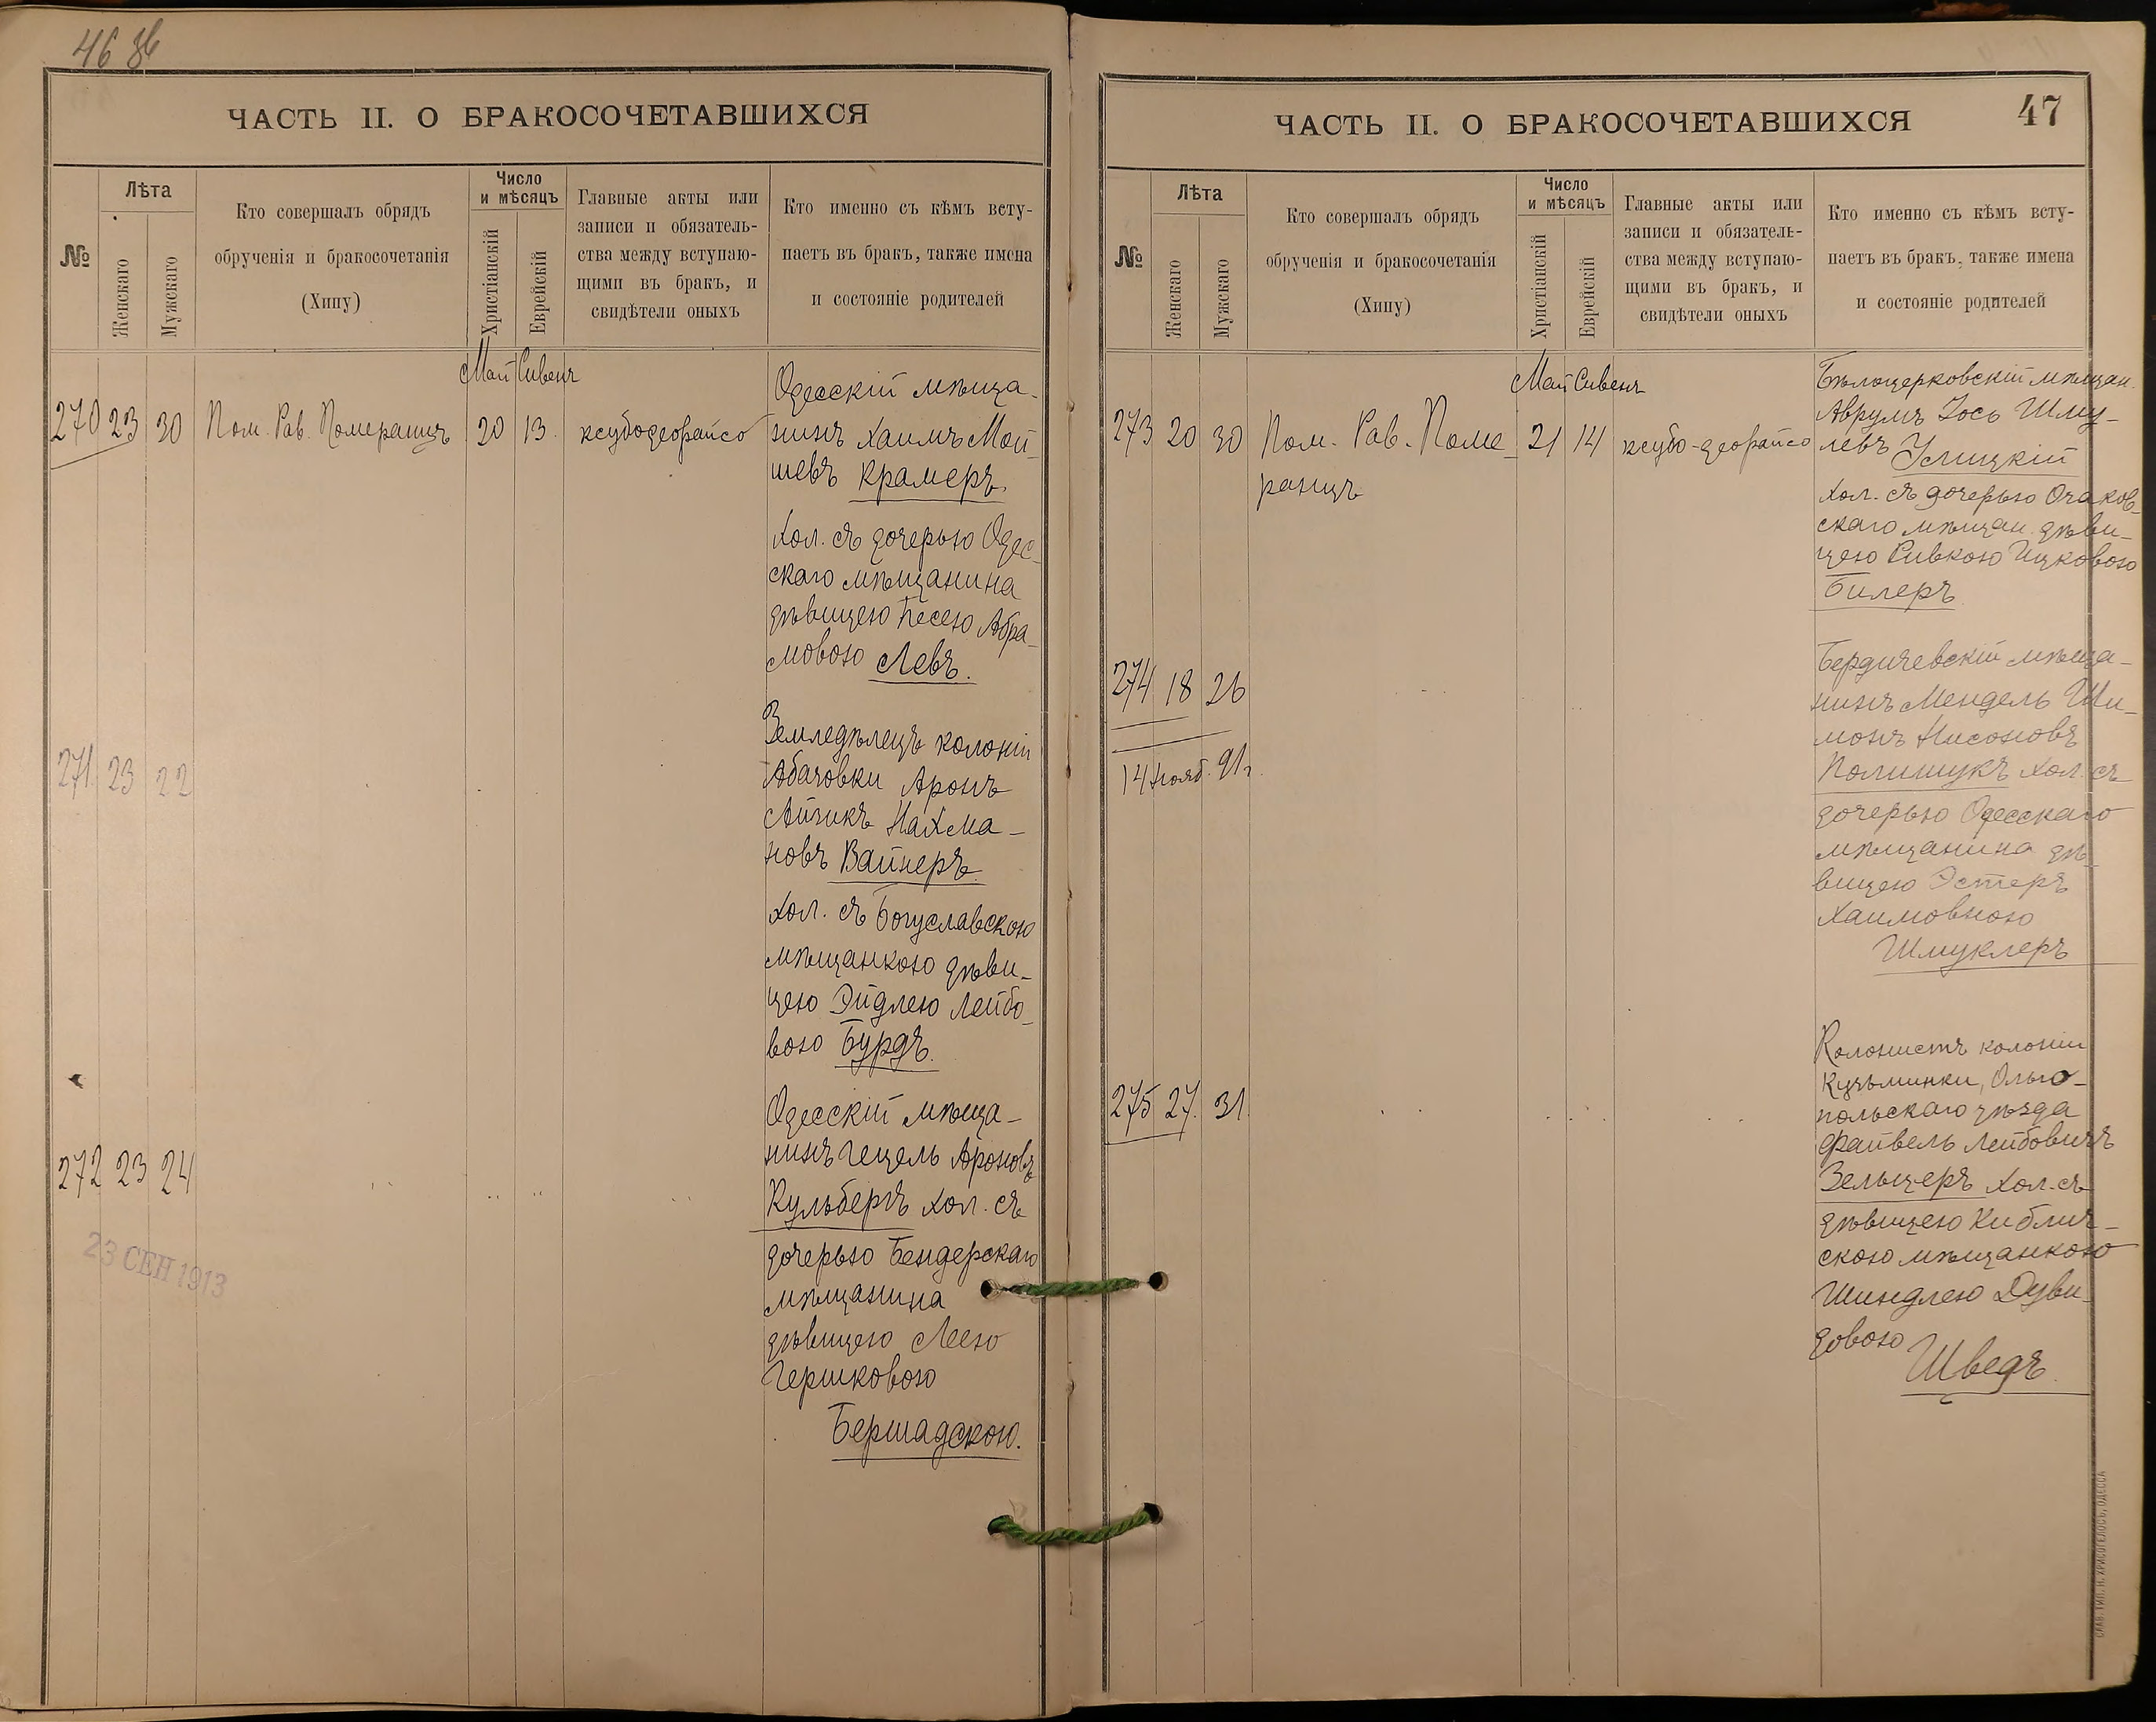 46 об
ЧАСТЬ II. О БРАКОСОЧЕТАВШИХСЯ
№
Лѣта
Женскаго
Мужскаго
Кто совершалъ обрядъ
обрученія и бракосочетанія
(Хипу)
Число
и мѣсяцъ
Христіанскій
Еврейскій
Главные акты или
записи и обязатель-
ства между вступаю-
щими въ бракъ, и
свидѣтели оныхъ
Кто именно съ кѣмъ всту-
паетъ въ бракъ, также имена
и состояніе родителей
Май Сивенъ
270 23 30 Пом. Рав. Померанцъ 20 13 ксубодеорайсо
Одесскій мѣща-
нинъ Хаимъ Мой-
шевъ Крамеръ
Хол. съ дочерью Одес-
скаго мѣщанина
дѣвицею Песею Абра-
мовою Левъ.
271 23 22
Земледѣлецъ колоніи
Абазовки Аронъ
Айзикъ Нахма-
новъ Вайнеръ
Хол. съ Богуславскою
мѣщанкою дѣви-
цею Эйдлею Лейбо-
вою Бурдъ.
272 23 24
Одесскій мѣща-
нинъ Гецель Ароновъ
Кульбергъ хол. съ
дочерью Бендерскаго
мѣщанина
дѣвицею Леею
Гершковою
Бершадскою.
23 СЕН 1913
47
ЧАСТЬ II. О БРАКОСОЧЕТАВШИХСЯ
№
Лѣта
Женскаго
Мужскаго
Кто совершалъ обрядъ
обрученія и бракосочетанія
(Хипу)
Число
и мѣсяцъ
Христіанскій
Еврейскій
Главные акты или
записи и обязатель-
ства между вступаю-
щими въ бракъ, и
свидѣтели оныхъ
Кто именно съ кѣмъ всту-
паетъ въ бракъ, также имена
и состояніе родителей
Май Сивенъ
273 20 30 Пом. Рав. Поме-
ранцъ
21 14 ксубо-деорайсо
Бѣлоцерковскій мѣщан.
Аврумъ Іось Шму-
левъ Усицкій
Хол. съ дочерью Очаков-
скаго мѣщан. дѣви-
цею Ривкою Ицковою
Билеръ
274 18 26
14 нояб. 91 г.
Бердичевскій мѣща-
нинъ Мендель Ши-
монъ Нисоновъ
Полищукъ хол. съ
дочерью Одесскаго
мѣщанина дѣ-
вицею Эстеръ
Хаимовною
Шмуклеръ
275 27 31
Колонистъ колоніи
Кузьминки, Ольго-
польскаго уѣзда
Файвель Лейбовичъ
Зельцеръ хол. съ
дѣвицею Кублич-
скою мѣщанкою
Шиндлею Дуви-
довою
Шведъ
СЛАВ. ТИП. Н. ХРИСОГЕЛОСЪ, ОДЕССА